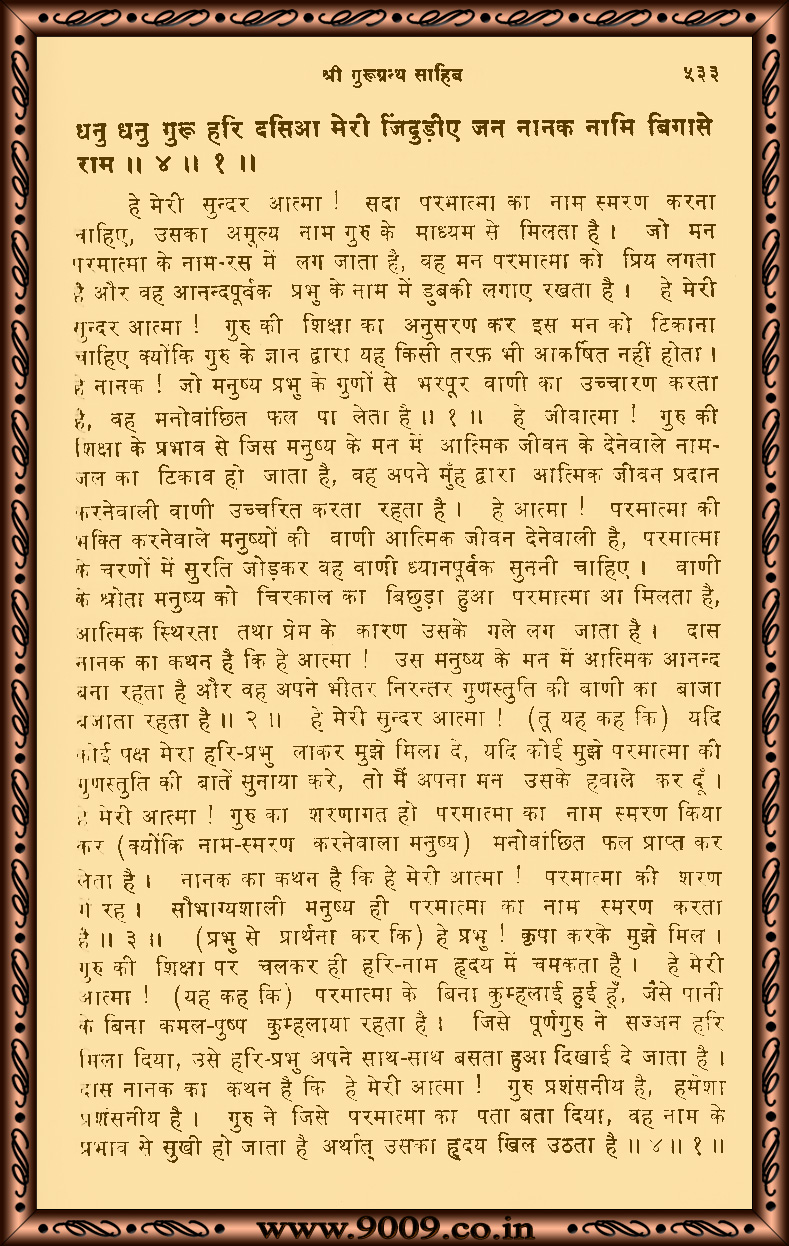 श्री गुरूग्रन्थ साहिब ५३३
धनु धनु गुरू हरि दसिआ मेरी जिंदुड़ीए जन नानक नामि बिगासे
राम ॥ ४ ॥ १ ॥
हे मेरी सुन्दर आत्मा ! सदा परमात्मा का नाम स्मरण करना
चाहिए, उसका अमूल्य नाम गुरु के माध्यम से मिलता है । जो मन
परमात्मा के नाम-रस में लग जाता है, वह मन परमात्मा को प्रिय लगता
है और वह आनन्दपूर्वक प्रभु के नाम में डुबकी लगाए रखता है । हे मेरी
सुन्दर आत्मा ! गुरु की शिक्षा का अनुसरण कर इस मन को टिकाना
चाहिए क्योंकि गुरु के ज्ञान द्वारा यह किसी तरफ़ भी आकर्षित नहीं होता ।
हे नानक ! जो मनुष्य प्रभु के गुणों से भरपूर वाणी का उच्चारण करता
है, वह मनोवांछित फल पा लेता है ॥ १ ॥ हे जीवात्मा ! गुरु की
शिक्षा के प्रभाव से जिस मनुष्य के मन में आत्मिक जीवन के देनेवाले नाम-
जल का टिकाव हो जाता है, वह अपने मुँह द्वारा आत्मिक जीवन प्रदान
करनेवाली वाणी उच्चरित करता रहता है । हे आत्मा ! परमात्मा की
भक्ति करनेवाले मनुष्यों की वाणी आत्मिक जीवन देनेवाली है, परमात्मा
के चरणों में सुरति जोड़कर वह वाणी ध्यानपूर्वक सुननी चाहिए । वाणी
के श्रोता मनुष्य को चिरकाल का बिछुड़ा हुआ परमात्मा आ मिलता है,
आत्मिक स्थिरता तथा प्रेम के कारण उसके गले लग जाता है । दास
नानक का कथन है कि हे आत्मा ! उस मनुष्य के मन में आत्मिक आनन्द
बना रहता है और वह अपने भीतर निरन्तर गुणस्तुति की वाणी का बाजा
बजाता रहता है ॥ २ ॥ हे मेरी सुन्दर आत्मा ! (तू यह कह कि) यदि
कोई पक्ष मेरा हरि-प्रभु लाकर मुझे मिला दे, यदि कोई मुझे परमात्मा की
गुणस्तुति की बातें सुनाया करे, तो मैं अपना मन उसके हवाले कर दूँ ।
हे मेरी आत्मा ! गुरु का शरणागत हो परमात्मा का नाम स्मरण किया
कर (क्योंकि नाम-स्मरण करनेवाला मनुष्य) मनोवांछित फल प्राप्त कर
लेता है । नानक का कथन है कि हे मेरी आत्मा ! परमात्मा की शरण
में रह । सौभाग्यशाली मनुष्य ही परमात्मा का नाम स्मरण करता
है ॥ ३ ॥ (प्रभु से प्रार्थना कर कि) हे प्रभु ! कृपा करके मुझे मिल ।
गुरु की शिक्षा पर चलकर ही हरि-नाम हृदय में चमकता है । हे मेरी
आत्मा ! (यह कह कि) परमात्मा के बिना कुम्हलाई हुई हूँ, जैसे पानी
के बिना कमल-पुष्प कुम्हलाया रहता है । जिसे पूर्णगुरु ने सज्जन हरि
मिला दिया, उसे हरि-प्रभु अपने साथ-साथ बसता हुआ दिखाई दे जाता है ।
दास नानक का कथन है कि हे मेरी आत्मा ! गुरु प्रशंसनीय है, हमेशा
प्रशंसनीय है । गुरु ने जिसे परमात्मा का पता बता दिया, वह नाम के
प्रभाव से सुखी हो जाता है अर्थात् उसका हृदय खिल उठता है ॥ ४ ॥ १ ॥
www.9009.co.in